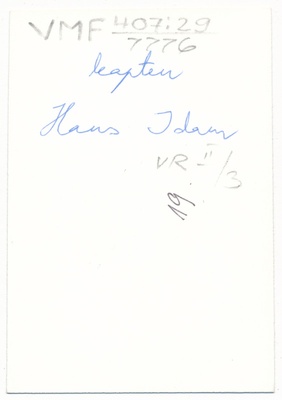 VMF 407:29
7776
kapten
Hans Idam
VR II/3
19.